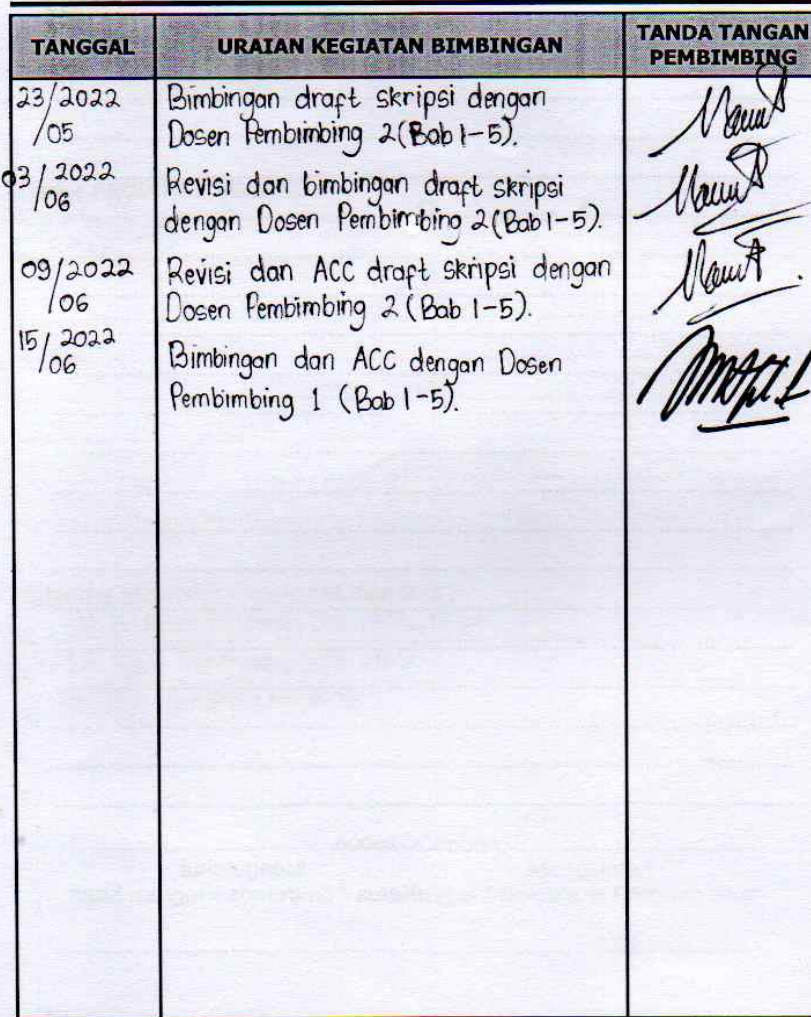 TANGGAL URAIAN KEGIATAN BIMBINGAN TANDA TANGAN
PEMBIMBING
23/2022 Bimbingan draft skripsi dengan
/05 Dosen Pembimbing 2 (Bab 1-5).
03/2022 Revisi dan bimbingan draft skripsi
/06 dengan Dosen Pembimbing 2 (Bab 1-5).
09/2022 Revisi dan ACC draft skripsi dengan
/06 Dosen Pembimbing 2 (Bab 1-5).
15/2022 Bimbingan dan ACC dengan Dosen
/06 Pembimbing 1 (Bab 1-5).